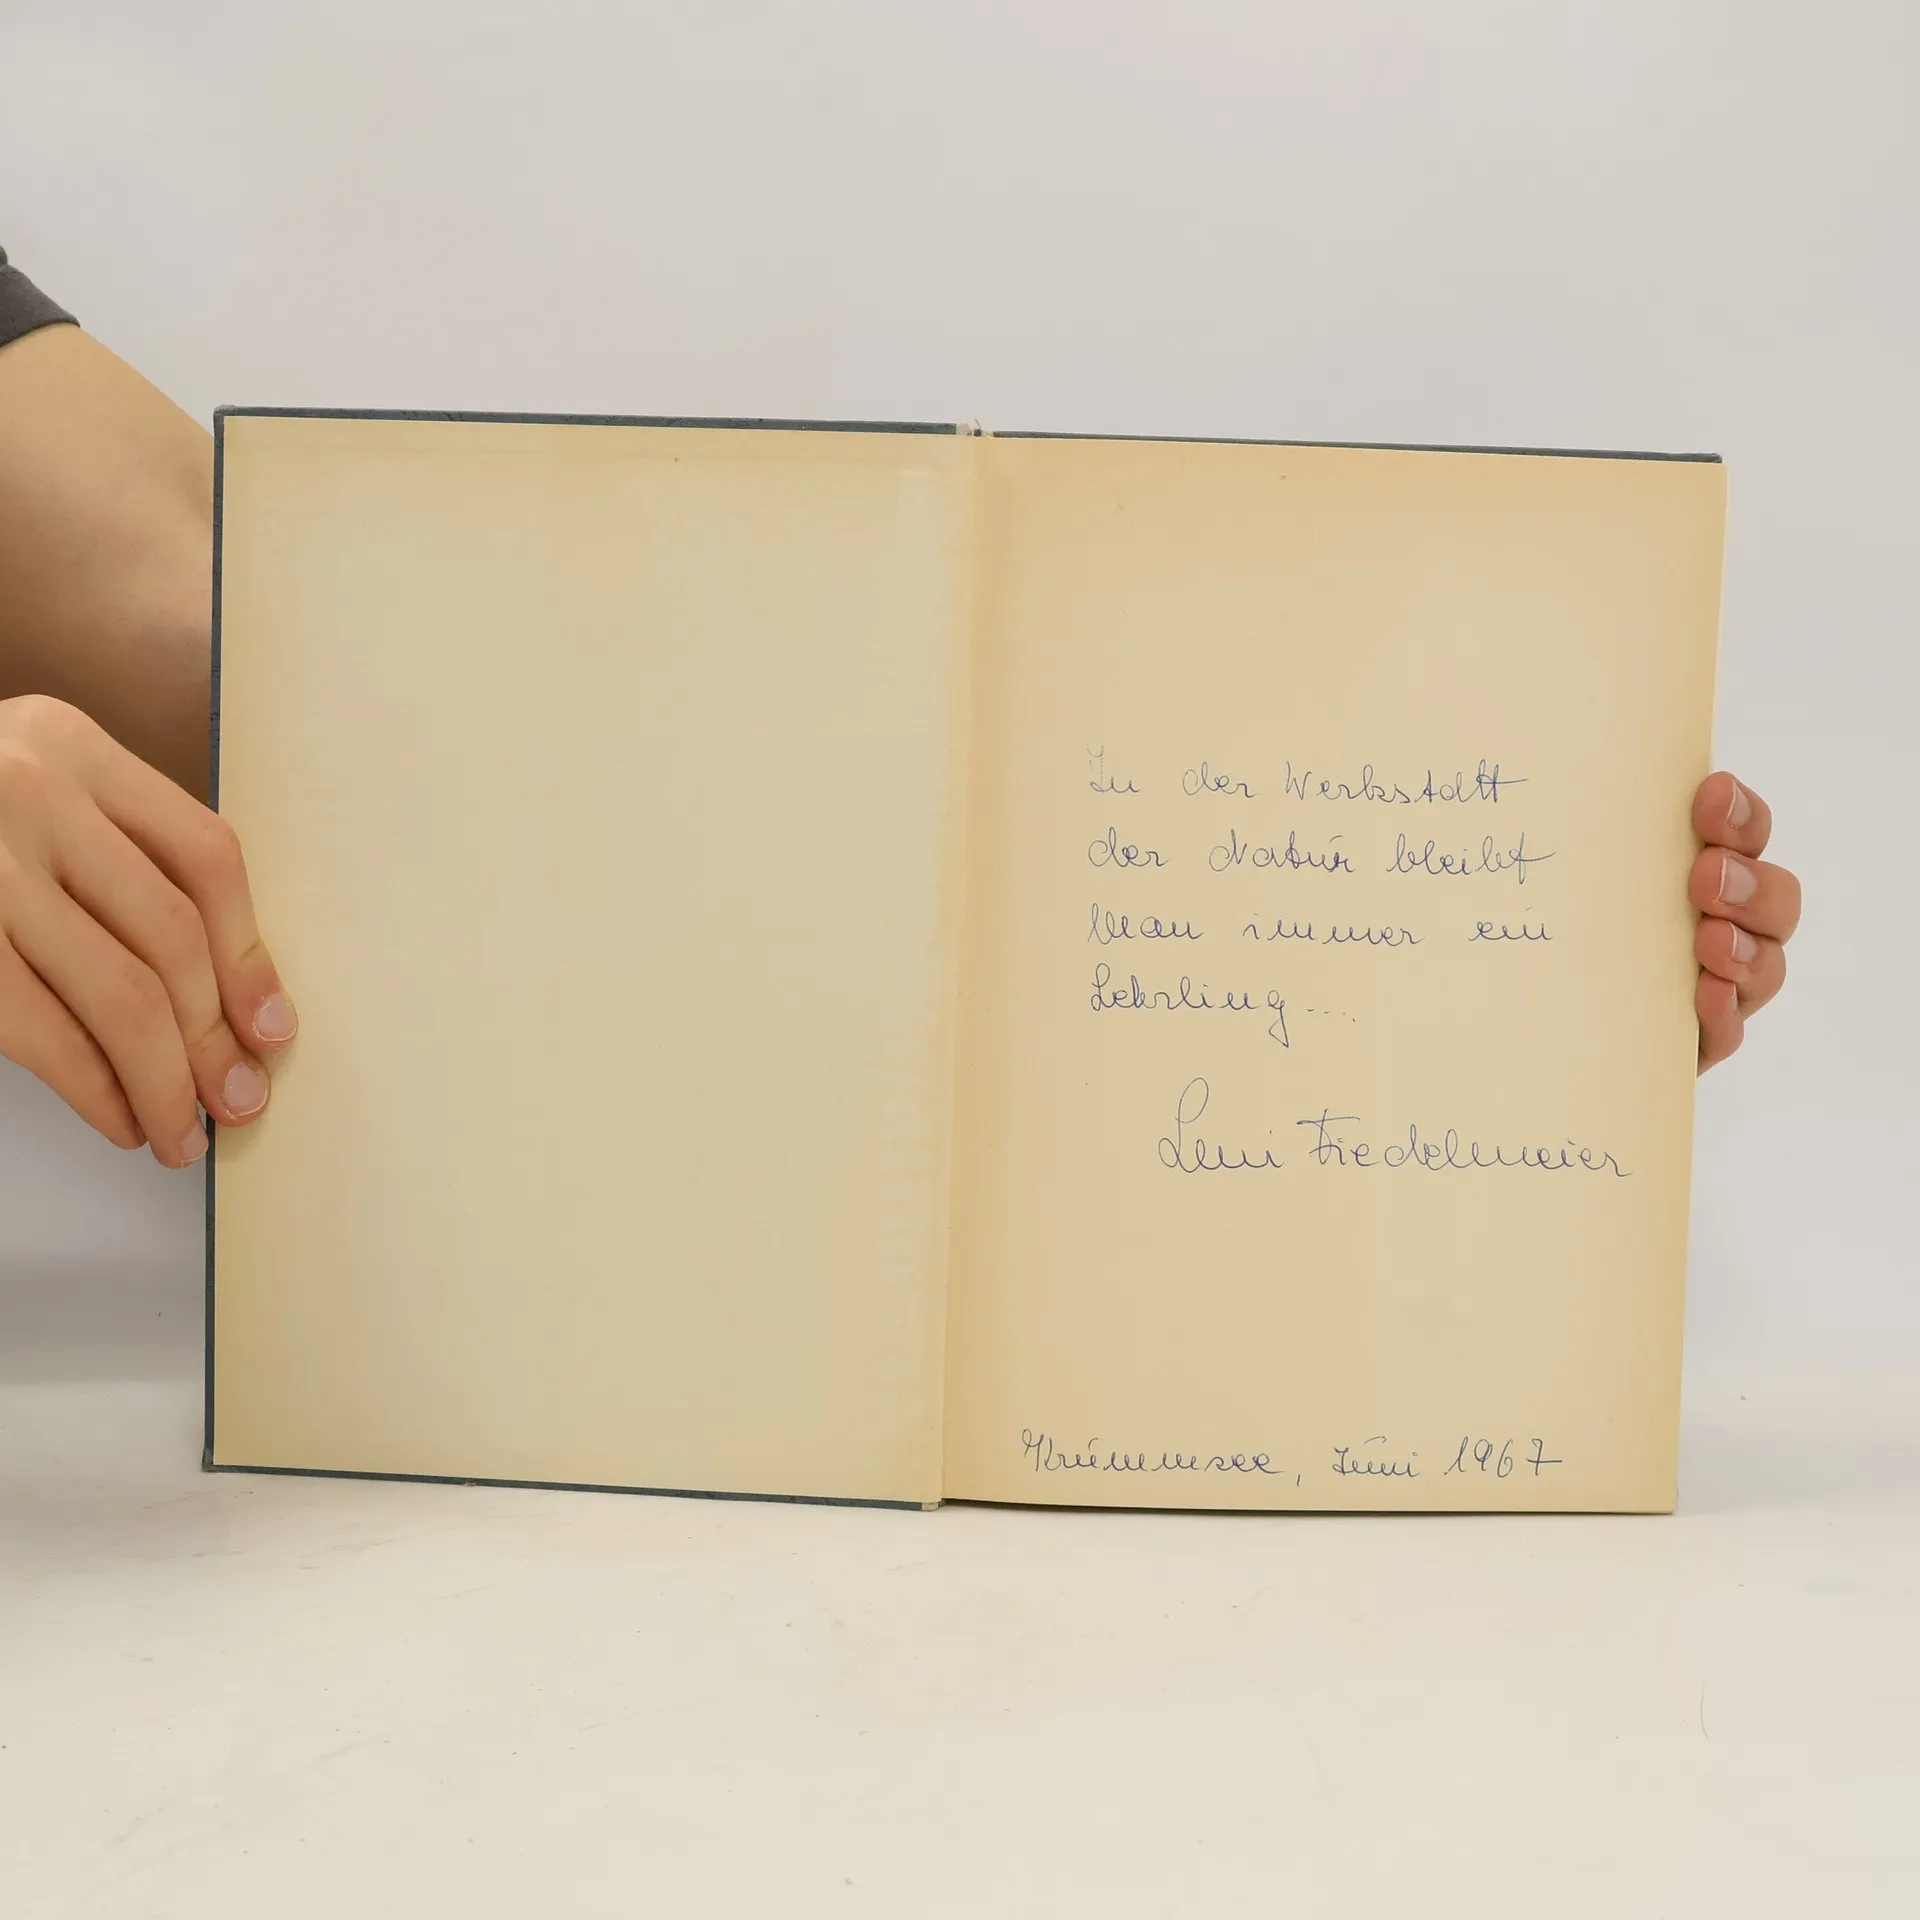 In der Werkstatt
der Natur bleibt
Man immer ein
Lehrling....
Leni Fiedelmeier
Krummsee, Juni 1967